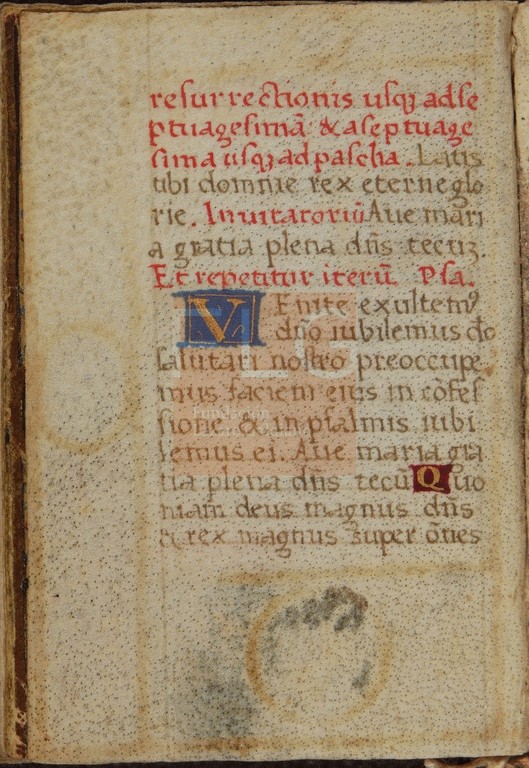 resurrectionis usq; ad se
ptuagesimā & a septuage
sima usq; ad pascha. Latis
tibi domine rex eterne glo
rie. Inuitatoriū Aue mari
a gratia plena dn̄s tecūz.
Et repetitur iterū. Psa.
VEnite exultemꝰ
dn̄o iubilemus do
salutari nostro preoccupe
mus faciem eius in cōfes
sione & in psalmis iubi
lemus ei. Aue maria gra
tia plena dn̄s tecū Quo
niam deus magnus dn̄s
& rex magnus super ōnes